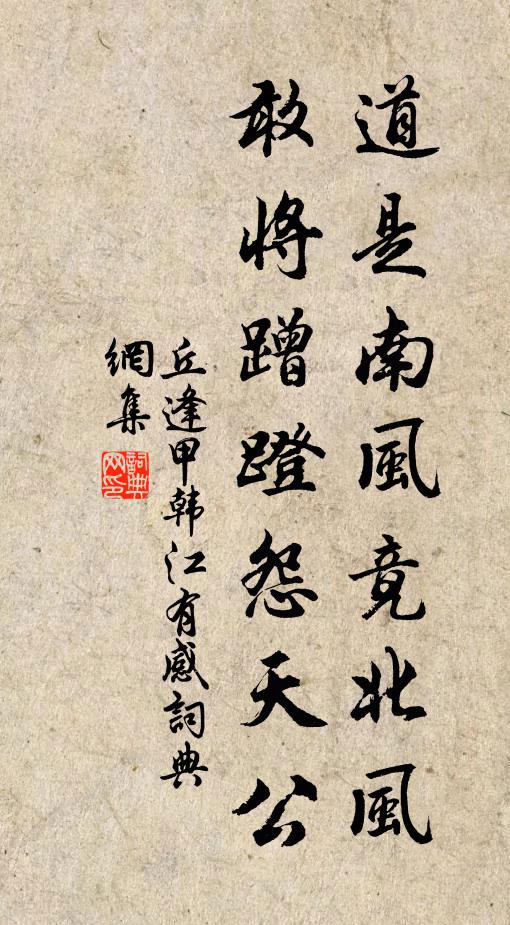 道是南風竟北風
敢將蹭蹬怨天公
丘逢甲韩江有感詞典
網集
詞典
网印